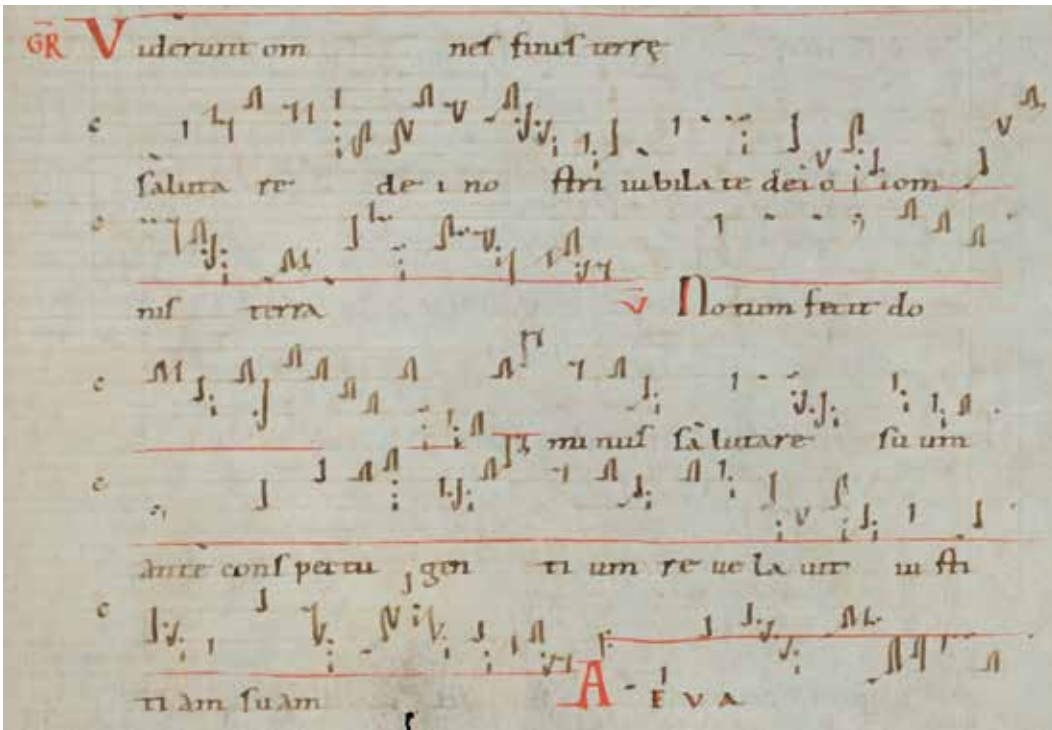 GR Viderunt om nes fines terrę
saluta re de i no stri iubilate deo o i iom
nis terra V Notum fecit do
mi nus sa lutare su um
ante conspectu gen ti um re ue la uit iu sti
ti am su am A E V A